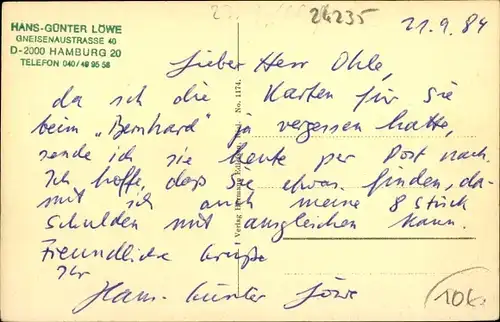 HANS-GÜNTER LÖWE
GNEISENAUSTRASSE 40
D-2000 HAMBURG 20
TELEFON 040/49 95 58
24235
21.9.84
Lieber Herr Ohle,
da ich die Karten für Sie
beim „Bernhard" ja vergessen hatte,
sende ich sie heute per Post nach.
Ich hoffe, daß Sie etwas finden, da-
mit ich auch meine 8 Stück
Schulden mit ausgleichen kann.
Freundliche Grüße
Ihr
Hans-Günter Löwe
Verlag Hermann
No. 1174.
10K